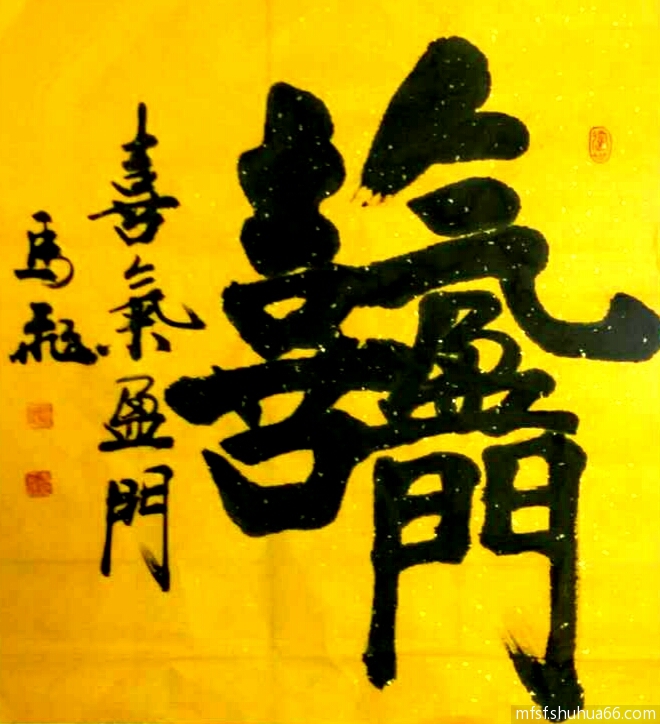 喜氣盈門
喜氣盈門
馬飛
mfsf.shuhua66.com